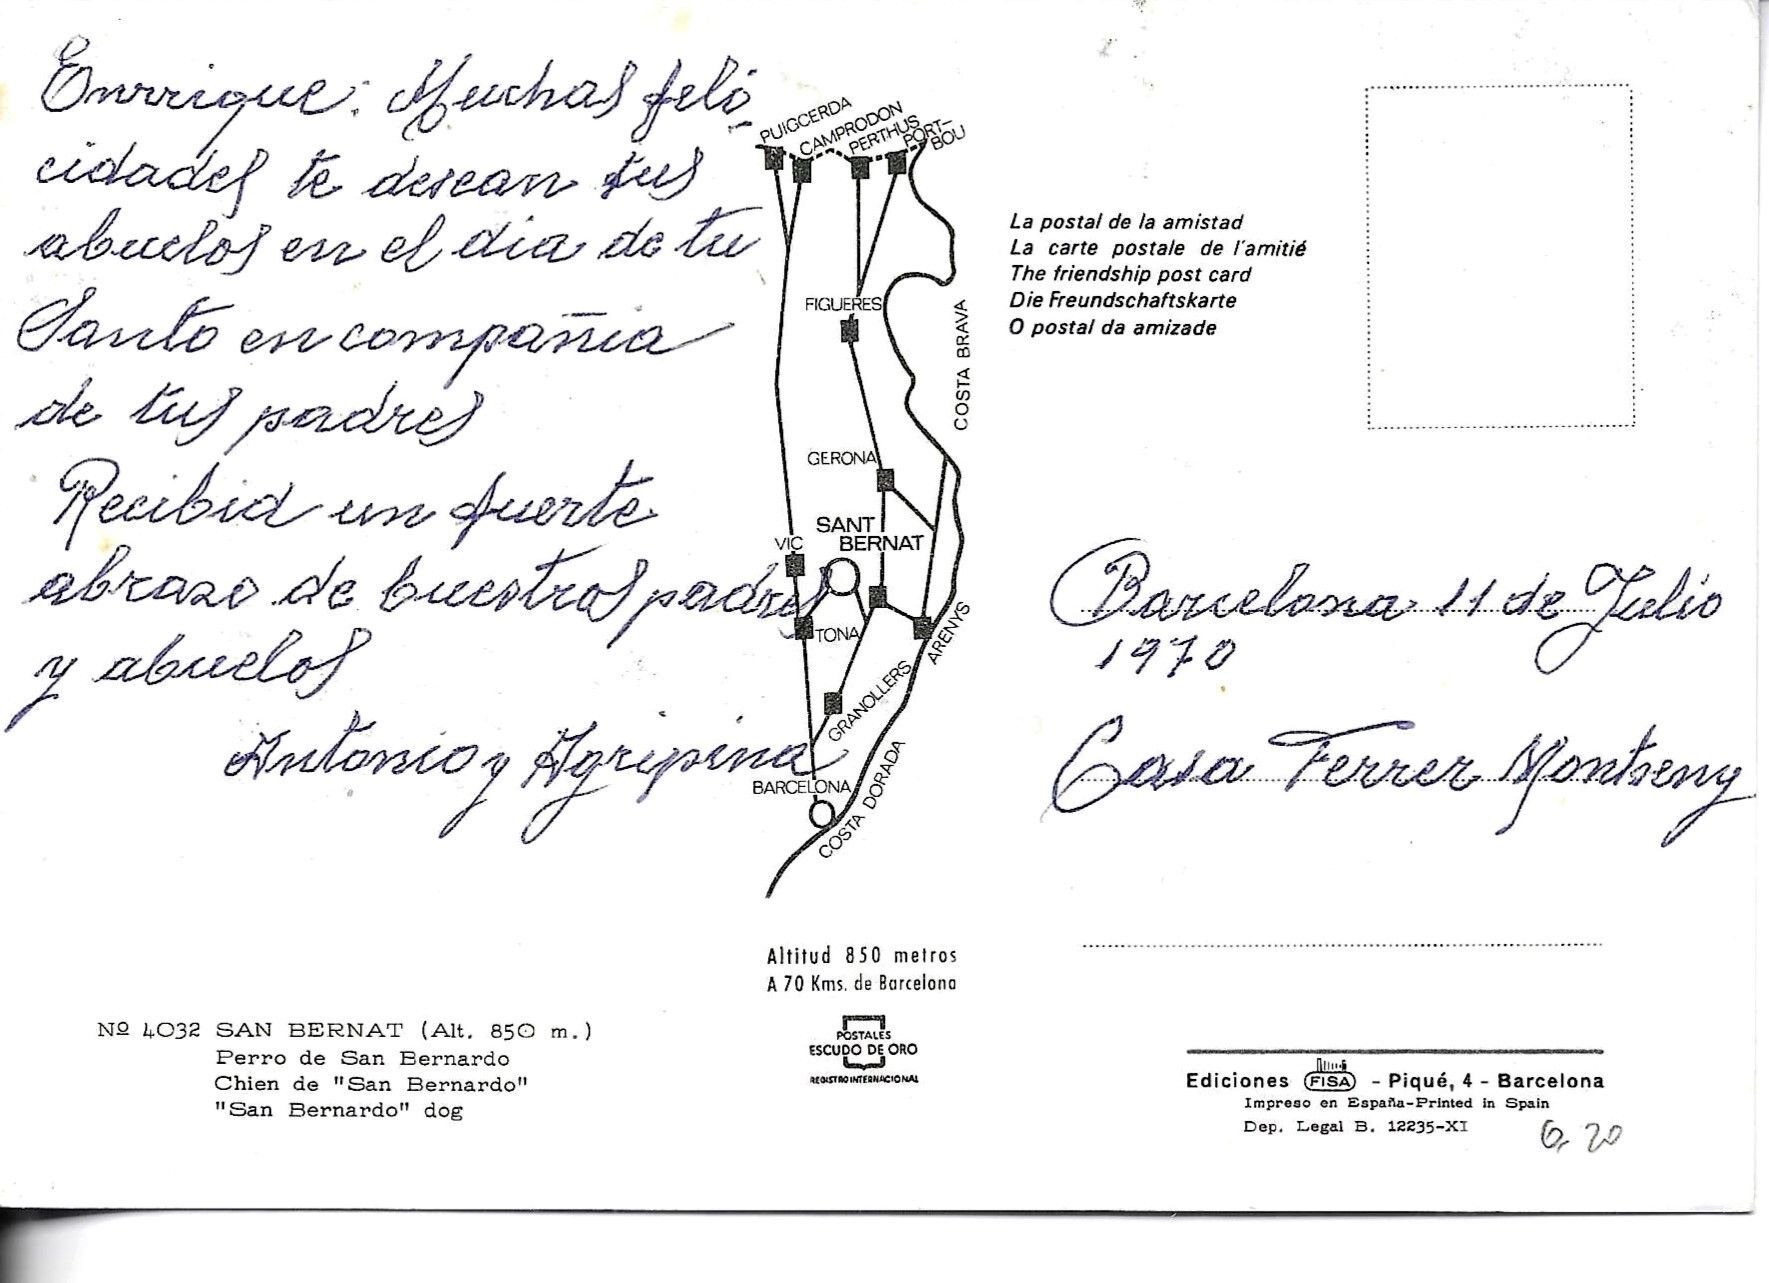 Enrrique: Muchas feli-
cidades te desean tus
abuelos en el dia de tu
Santo en compañia
de tus padres
Recibid un fuerte
abrazo de buestros padres
y abuelos
Antonio y Agripina
PUIGCERDA
CAMPRODON
PERTHUS
PORT-
BOU
FIGUERES
COSTA BRAVA
GERONA
SANT
BERNAT
VIC
TONA
ARENYS
GRANOLLERS
BARCELONA
COSTA DORADA
Altitud 850 metros
A 70 Kms. de Barcelona
POSTALES
ESCUDO DE ORO
REGISTRO INTERNACIONAL
Nº 4032 SAN BERNAT (Alt. 850 m.)
Perro de San Bernardo
Chien de "San Bernardo"
"San Bernardo" dog
La postal de la amistad
La carte postale de l'amitié
The friendship post card
Die Freundschaftskarte
O postal da amizade
Barcelona 11 de Julio
1970
Casa Ferrer Montseny
Ediciones FISA - Piqué, 4 - Barcelona
Impreso en España-Printed in Spain
Dep. Legal B. 12235-XI
0,20